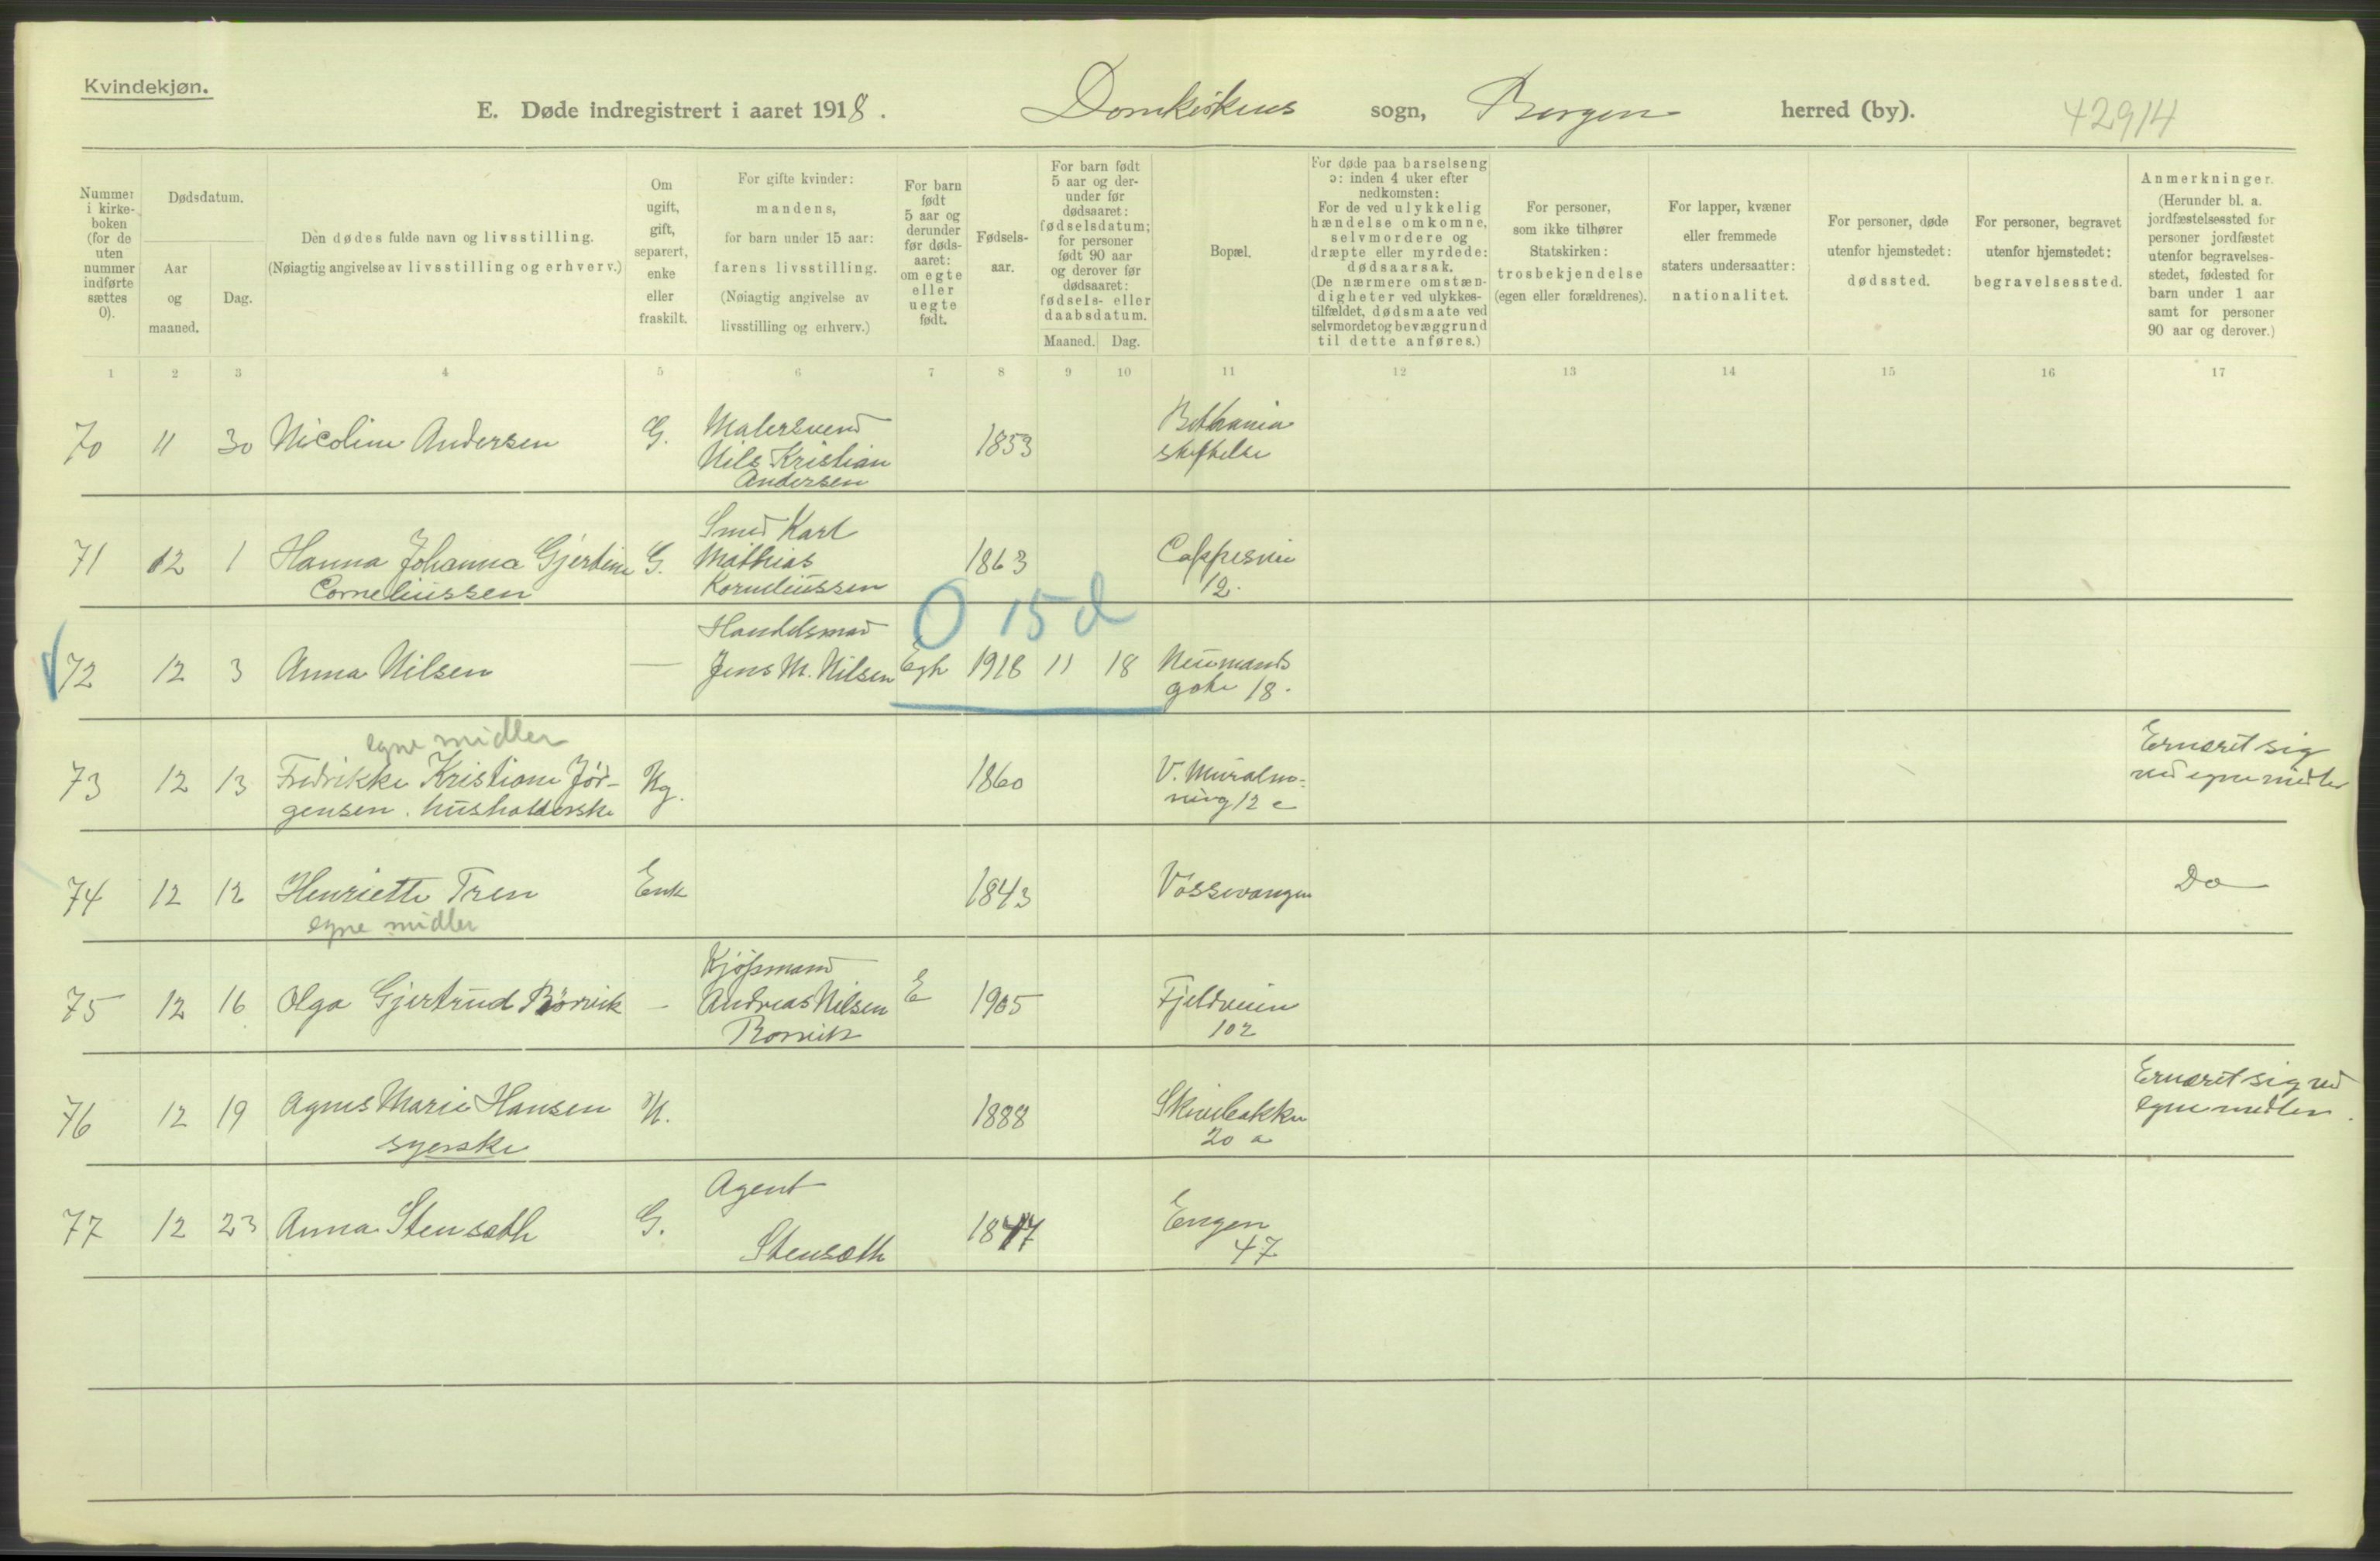 Kvindekjøn.
E. Døde indregistrert i aaret 1918. Domkirkens sogn, Bergen herred (by). 42914
Nummer i kirkeboken (for de uten nummer indførte sættes 0).
Dødsdatum.
Aar og maaned.
Dag.
Den dødes fulde navn og livsstilling.
(Nøiagtig angivelse av livsstilling og erhverv.)
Om ugift, gift, separert, enke eller fraskilt.
For gifte kvinder: mandens, for barn under 15 aar: farens livsstilling. (Nøiagtig angivelse av livsstilling og erhverv.)
For barn født 5 aar og derunder før dødsaaret: om egte eller uegte født.
Fødselsaar.
For barn født 5 aar og derunder før dødsaaret: fødselsdatum; for personer født 90 aar og derover før dødsaaret: fødsels- eller daabsdatum.
Maaned. Dag.
Bopæl.
For døde paa barselseng ɔ: inden 4 uker efter nedkomsten: For de ved ulykkelig hændelse omkomne, selvmordere og dræpte eller myrdede: dødsaarsak. (De nærmere omstændigheter ved ulykkestilfældet, dødsmaate ved selvmordet og bevæggrund til dette anføres.)
For personer, som ikke tilhører Statskirken: trosbekjendelse (egen eller forældrenes).
For lapper, kvæner eller fremmede staters undersaatter: nationalitet.
For personer, døde utenfor hjemstedet: dødssted.
For personer, begravet utenfor hjemstedet: begravelsessted.
Anmerkninger. (Herunder bl. a. jordfæstelsessted for personer jordfæstet utenfor begravelsesstedet, fødested for barn under 1 aar samt for personer 90 aar og derover.)
1 2 3 4 5 6 7 8 9 10 11 12 13 14 15 16 17
70 11 30 Nicoline Andersen G. Malersvend 1853 Bethania
Nils Kristian stiftelse
Andersen
Smed Karl
71 12 1 Hanna Johanna Gjertine G. Mathias 1863 Cappesvei
Corneliussen Korneliussen 12.
0 15 d
Handelsmand
72 12 3 Anna Nilsen — Jens M. Nilsen Egte 1918 11 18 Neumands
gate 18.
egne midler
73 12 13 Fredrikke Kristiane Jør- Ug. 1860 V. Muralme- Ernæret sig
gensen. husholderske ning 12 c ved egne midler
74 12 12 Henriette Tren Enk 1843 Vossevangen Do
egne midler
Kjøpmand
75 12 16 Olga Gjertrud Rörvik — Andreas Nilsen E 1905 Fjeldveien
Rörvik 102
76 12 19 Agnes Marie Hansen U. 1888 Skivebakken Ernæret sig ved
syerske 20 a egne midler.
Agent
77 12 23 Anna Stensæth G. Engen
Stensæth 47